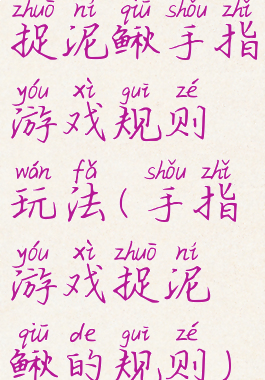 zhuō ní qiū shǒu zhǐ
捉泥鳅手指
yóu xì guī zé
游戏规则
wán fǎ shǒu zhǐ
玩法(手指
yóu xì zhuō ní
游戏捉泥
qiū de guī zé
鳅的规则)